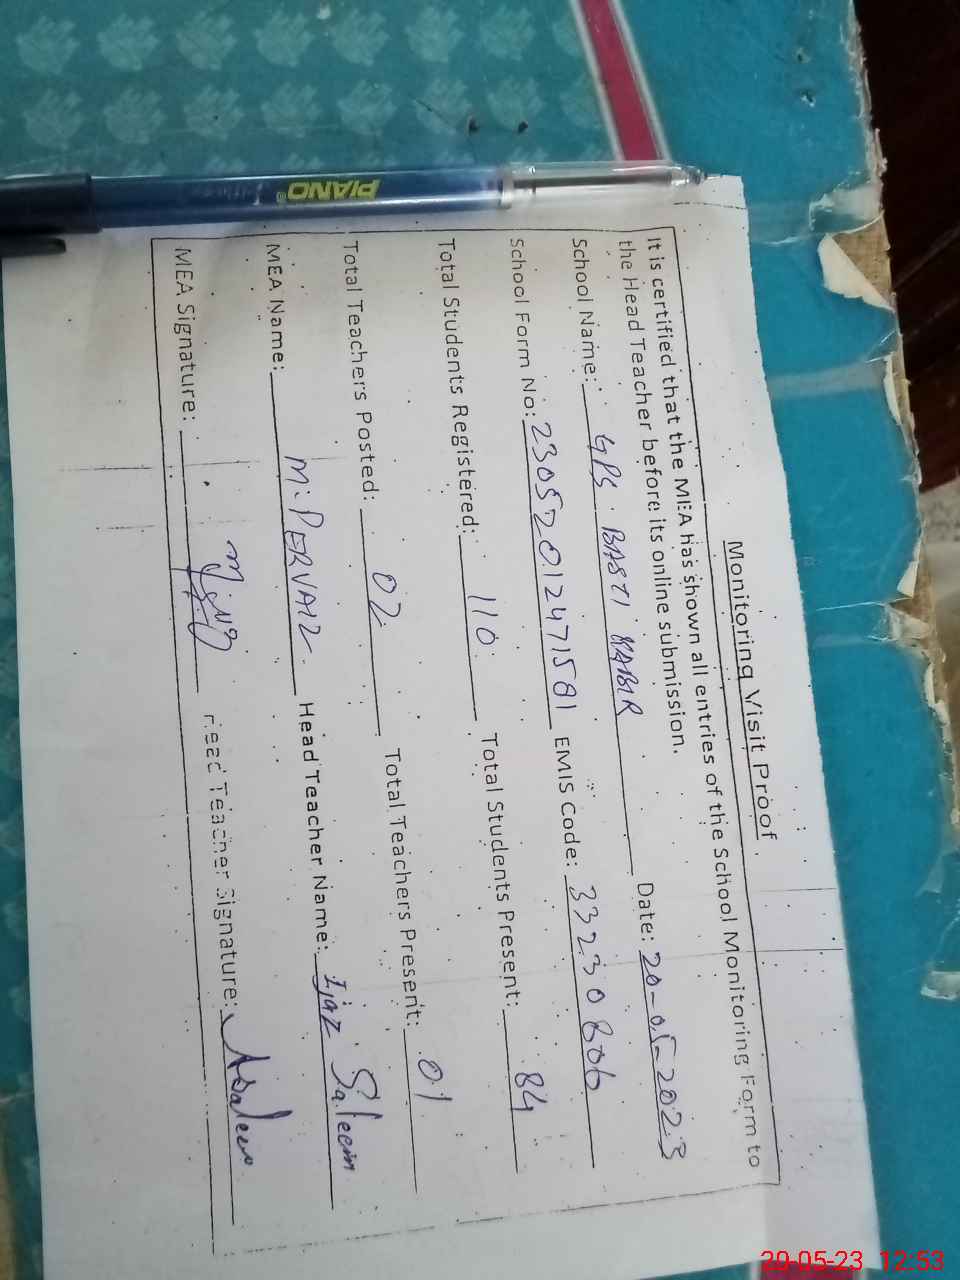 Monitoring Visit Proof
It is certified that the MEA has shown all entries of the School Monitoring Form to
the Head Teacher before its online submission.
School Name: GPS BASTI Date: 20-05-2023
School Form No: 23052012471581 EMIS Code: 33230806
Total Students Registered: 110 Total Students Present: 84
Total Teachers Posted: 02 Total Teachers Present: 01
MEA Name: M. PERVAIZ Head Teacher Name: Ijaz Saleem
MEA Signature: Head Teacher Signature:
PIANO®
20-05-23 12:53